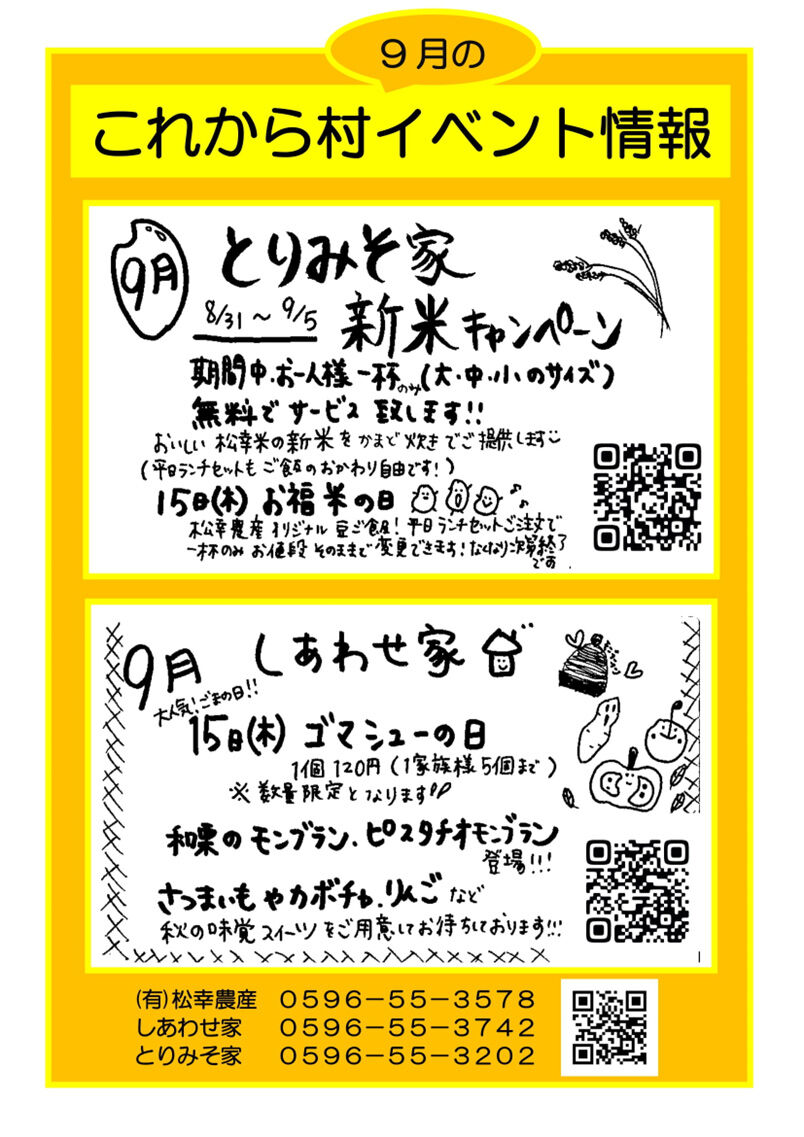 9月の
これから村イベント情報
9月
とりみそ家
8/31～9/5
新米キャンペーン
期間中、お一人様一杯のみ(大・中・小のサイズ)
無料でサービス致します!!
おいしい松幸米の新米をかまど炊きでご提供します
(平日ランチセットもご飯のおかわり自由です!)
15日(木)お福米の日
松幸農産オリジナル豆ご飯!平日ランチセットご注文で
一杯のみお値段そのままで変更できます!なくなり次第終了
です.
9月 しあわせ家
大人気!ごまの日!!
15日(木) ゴマシューの日
1個120円(1家族様5個まで)
※数量限定となります!!
和栗のモンブラン、ピスタチオモンブラン
登場!!!
さつまいもやカボチャ、りんごなど
秋の味覚スイーツをご用意してお待ちしております!!!
(有)松幸農産 0596－55－3578
しあわせ家 0596－55－3742
とりみそ家 0596－55－3202